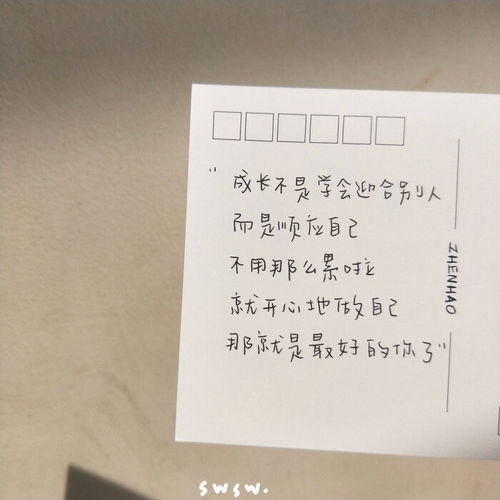 “成长不是学会迎合别人
而是顺应自己
不用那么累啦
就开心地做自己
那就是最好的你了”
ZHENHAO
swsw.